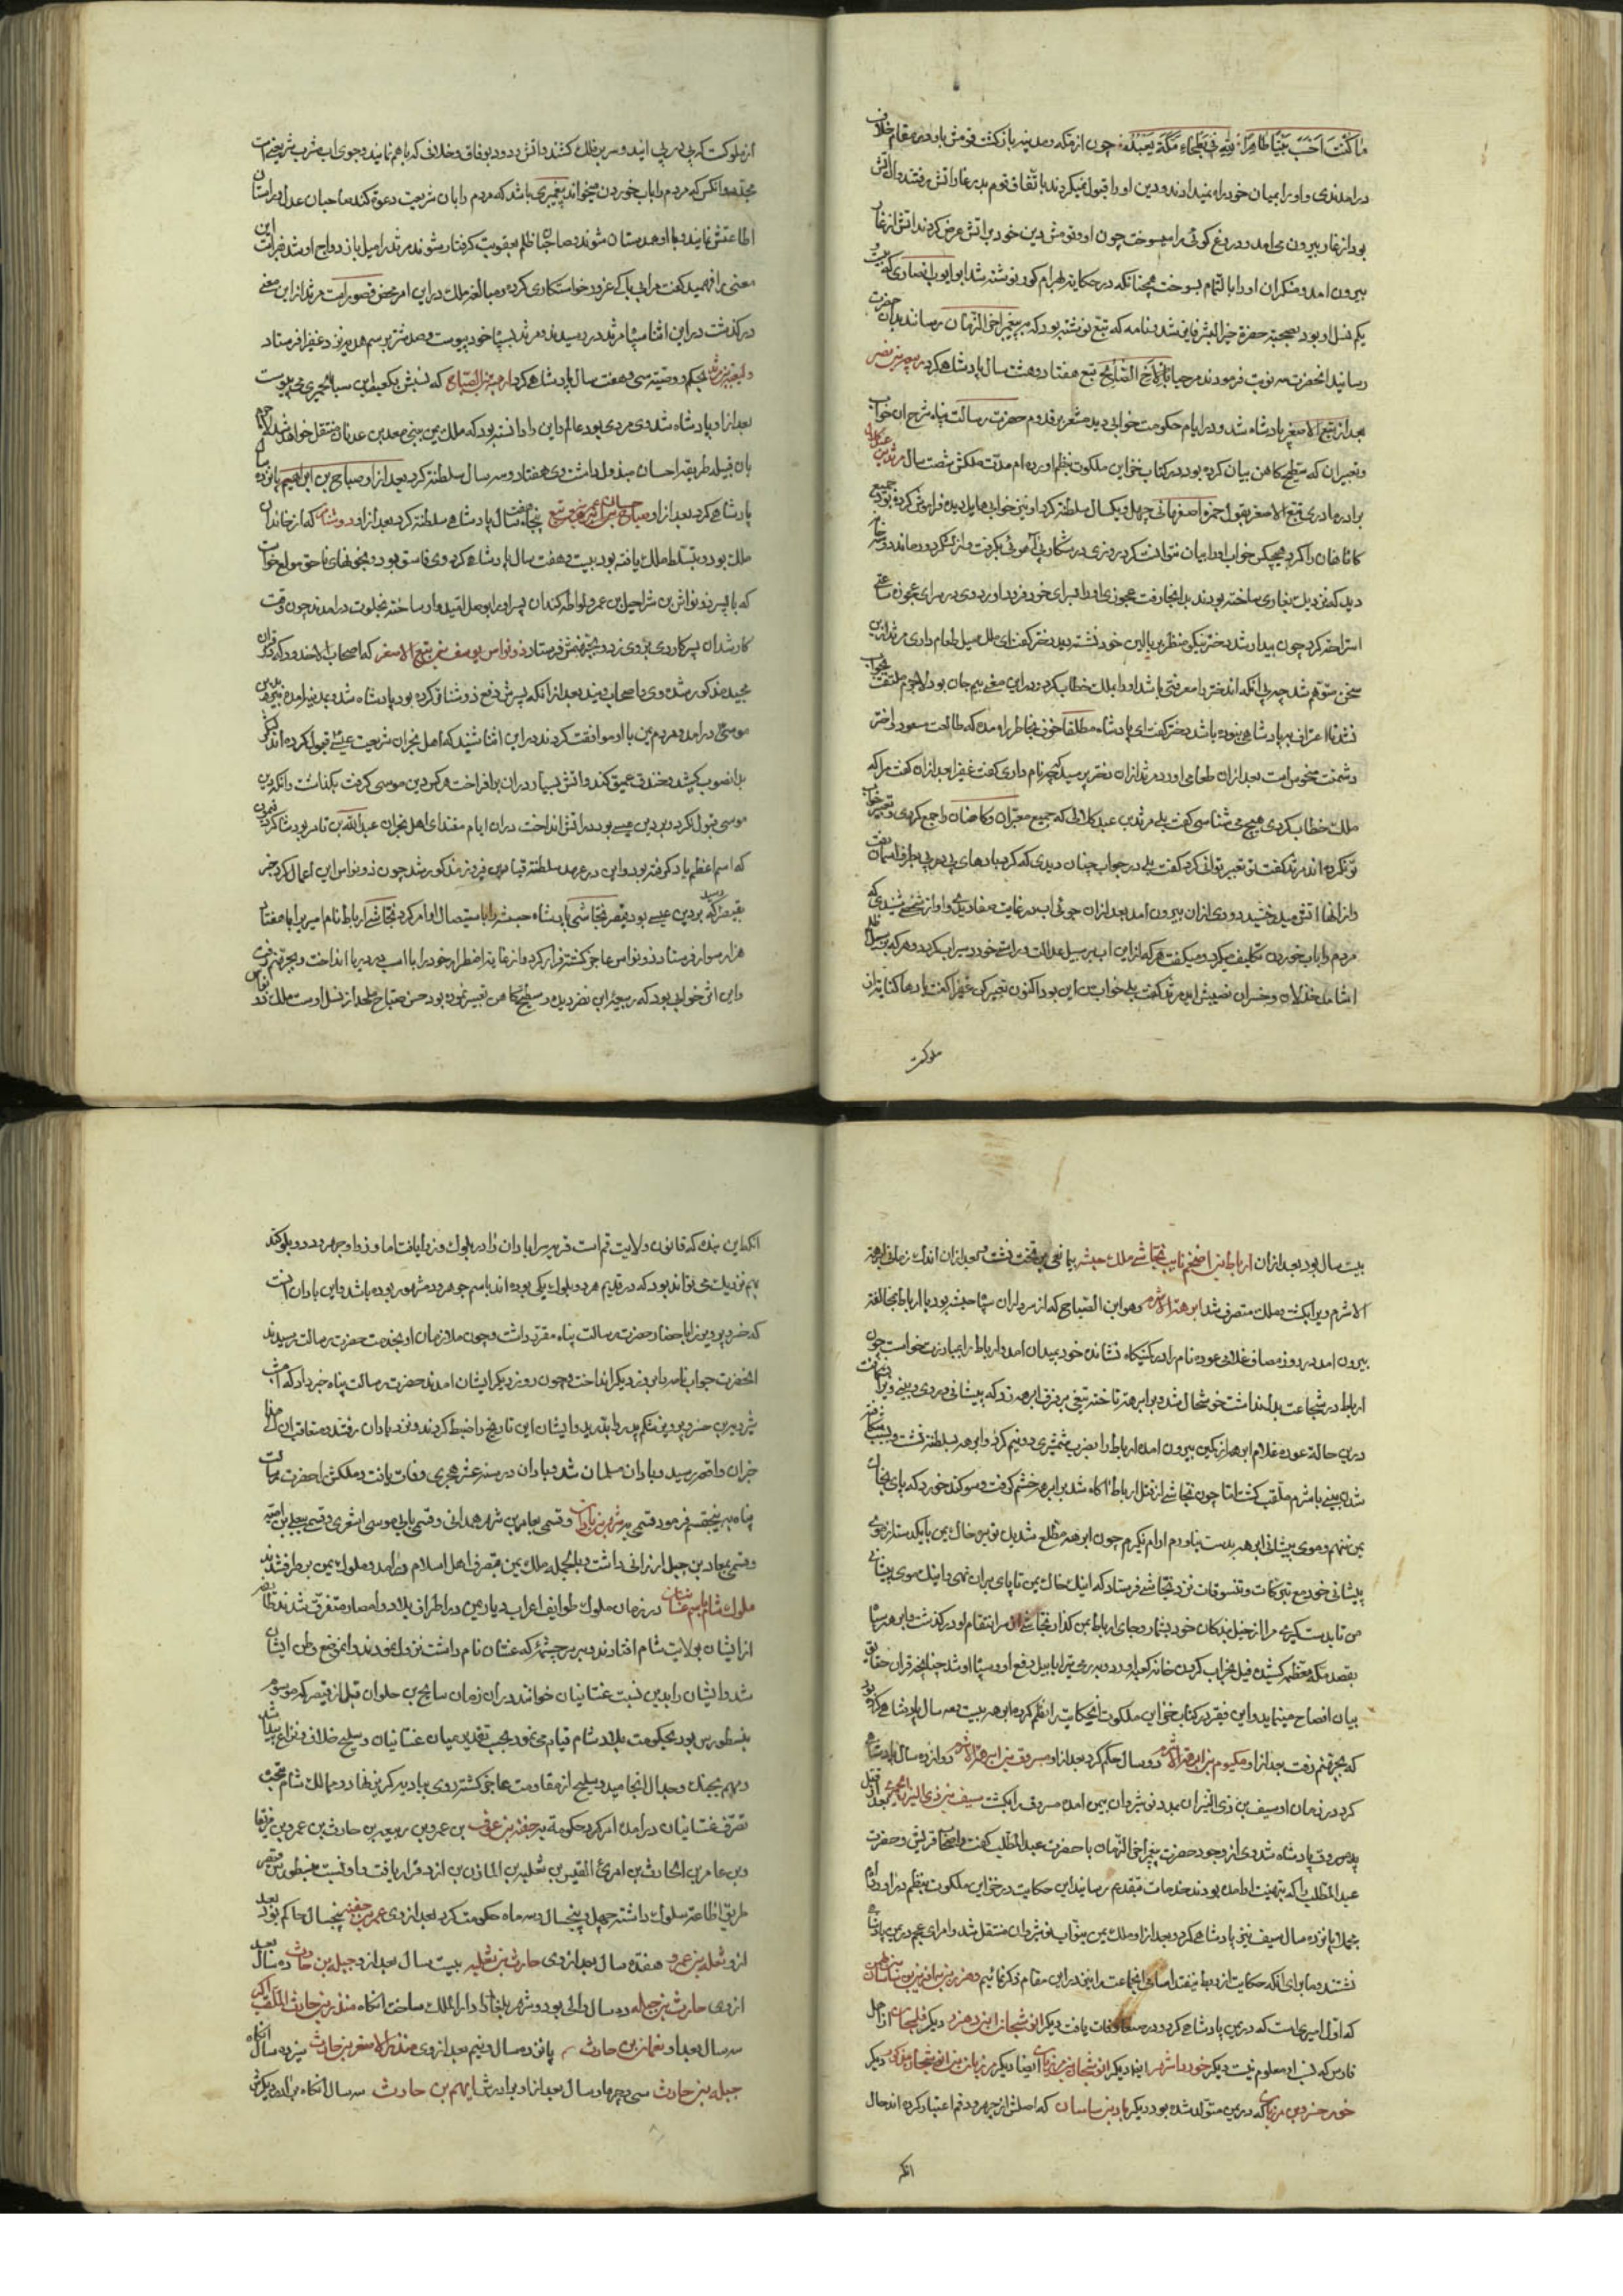 ما کنت احسب بیتا طاهرا لله فی بطحاء مکة یعبد چون از مکه و مدینه بازگشت قومش با و در مقام خلاف
در امدندی و او را بمیان خود راه نمیدادند و دین او را قبول نمیکردند با تفاق قوم بدر غار اتش رفتند و ان اتش
بود از غار بیرون می امد و دروغ کوئی را میسوخت چون او و قومش دین خود بر اتش عرض کردند اتش از غار
بیرون امد و منکران او را بالتمام بسوخت همچنانکه در حکایة بهرام کور نوشته شد ابو ایوب انصاری که
یکم نسل او بود بصحبة حضرة خیر البشر فایز شد و نامه که تبع نوشته بود که به پیغمبر اخر الزمان رساند بدان حضرت
رسانید انحضرت سه نوبت فرمودند مرحبا بالاخ الصالح تبع هفتاد و هشت سال پادشاهی کرد ربیعه بن نصر
بعد از تبع الاصغر پادشاه شد و در ایام حکومت خوابی دید مشعر بر قدوم حضرت رسالت پناه شرح ان خواب
و تعبیر ان که سطیح کاهن بیان کرده بود در کتاب خزاین ملکوت بنظم اورده ام مدت ملکش شصت سال مرثد بن عبد کلال
برادر مادری تبع الاصغر بقول حمزه اصفهانی چهل و یکسال سلطنة کرد او نیز خوابی هایل دیده فراموش کرده بود جمیع
کاهنان را کرد هیچکس خواب او را بیان نتوانست کرد روزی در شکار پی اهوئی بگرفت و از لشکر دور ماند و
دید که نزدیک بغاری ساخته بودند بدانجا رفت عجوزی او را بسرای خود فرود اورد وی در سرای عجوزه ساعتی
استراحة کرد چون بیدار شد دختر نیکو منظر بر بالین خود نشسته دید دختر کفت ای ملک میل طعام داری مرثد ازین
سخن متوهم شد چه بی انکه اندختر را معرفتی باشد او را بملک خطاب کرد و در این معنی بیم جان بود لاجرم ملتفت بجواب
نشد تا اعتراف به پادشاهی ننموده باشد دختر کفت ای پادشاه مطلقا خوف بخاطر راه مده که طالعت مسعود و اختر
دشمنت منحوس است بعد ازان طعامی اورد مرثد ازان دختر پرسید که چه نام داری کفت عفیرا بعد ازان کفت مرا که
ملک خطاب کردی هیچ می شناسی کفت بلی مرثد بن عبد کلالی که جمیع معبران و کاهنان را جمع کردی و تعبیر خواب
تو نکرده اند مرثد کفت تو تعبیر توانی کرد کفت بلی در خواب چنان دیدی که کرد بادهای پی در پی بطرف اسمان رفت
و از انها اتش میدرخشید و دودی ازان بیرون امد بعد ازان جوئی اب در غایت صفا دیدی و اواز شخصی شنیدی که
مردم را باب خوردن تکلیف میکرد و میکفت هر که از این اب بر سبیل عدالت در است خود سیراب کردد و هر که بر سبیل ظلم
اشامد خذلان و خسران نصیبش اید مرثد کفت بلی خواب من این بود اکنون تعبیر کن عفیرا کفت بادها کنایة از
ملوکست
از ملوکست که پی در پی ایند و سر بر فلک کشند و اتش و دود بوفاق و خلافی که با هم نمایند و جوی اب مشرب شریعتست
محمد و انکس که مردم را باب خوردن میخواند پیغمبری باشد که مردم را بان شریعت دعوة کند صاحبان عدل و راستان
اطاعتش نمایند و با او همدستان شوند و صاحبان ظلم بعقوبت گرفتار شوند مرثد را میل بازدواج او شد فراست این
معنی را فهمید کفت مرا پی پاکی غرور خواستکاری کرده و مبالغه ملک در این امر محض قصور است مرثد از این معنی
درگذشت در این اثنا سپاه مرثد در رسیدند و مرثد بسپاه خود پیوست و صد شتر برسم هدیه نزد عفیرا فرستاد
ولیعه بن مرثد بحکم و وصیة سی و هفت سال پادشاهی کرد ابرهة بن الصباح که نسبش بکعب ابن سبا الحمیری می پیوست
بعد از او پادشاه شد وی مردی بود عالم و این را دانسته بود که ملک یمن ببنی معد بن عدنان منتقل خواهد شد لاجرم
بان قبیله طریقه احسان مبذول داشت وی هفتاد و سه سال سلطنة کرد بعد از او صباح بن ابراهیم پانزده سال
پادشاهی کرد بعد از او حسان بن عمرو بن تبع پنجاه و هفت سال پادشاهی سلطنة کرد بعد از او ذو شناتر که از خاندان
ملک بود و بتسلط ملک یافته بود بیست و هفت سال پادشاهی کرد وی فاسق بود و بخونهای ناحق مولع خواست
که با پسر ذو نواش بن شراحیل بن عمرو لواطه کند ان پسر او را بوصل امیدوار ساخته بخلوت درامد چون وقت
کار شد ان پسر کاردی بر وی زد و بجهنمش فرستاد ذو نواس یوسف بن تبع الاصغر که اصحاب الاخدود که در قران
مجید مذکور شده وی و اصحاب ویند بعد از انکه پسرش دفع ذو شناتر کرده بود پادشاه شد و بمدینه امده بدین
موسی در امد و مردم یمن با او موافقت کردند در این اثنا شنید که اهل نجران شریعت عیسی قبول کرده اند لشکر
بدانصوب کشید و خندق عمیق کند و اتش بسیار در ان برافراخت هر کس دین موسی کرفت بکذاشت و انکه دین
موسی قبول نکرد و بر دین عیسی بود در اتش انداخت دران ایام مقتدای اهل نجران عبد الله بن تامر بود شاکرد فیمون
که اسم اعظم یاد کرفته بود و این در عهد سلطنة قباد بن فیروز مذکور شد چون ذو نواس این اعمال کرد خبر
بقیصر رسید که بر دین عیسی بود قیصر نجاشی پادشاه حبشه را باستیصال او امر کرد نجاشی ارباط نام امیر را با هفتاد
هزار سوار فرستاد ذو نواس عاجز کشته فرار کرد و از غایة اضطرار خود را با اسب در دریا انداخت و بجهنم رفت
و این اثر خوابی بود که ربیعه ابن نصر دیده و سطیح کاهن تعبیر نموده بود حسن صباح ملحد از نسل اوست ملک ذو نواس
بیست سال بود بعد ازان ارباط بن اضخم نایب نجاشی ملک حبشه بمانعی بر تخت نشست و بعد ازان اندک زمانی ابرهة
الاشرم ویرا بکشت و ملک متصرف شد ابرهة الاشرم وهو ابن الصباح که از سرداران سپاه حبشه بود با ارباط بمخالفة
بیرون امد در روز مصاف غلامی عوده نام را در کمینکاه نشانده خود بمیدان امد و ارباط را بمبارزت خواست چون
ارباط در شجاعت بدل نداشت خوشحال شد و بر ابرهة تاخته تیغی بر فرق ابرهه زد که پیشانی و روی و بینی ویرا
درین حالة عوده غلام ابرهه از کمین بیرون امده ارباط را بضرب شمشیری دو نیم کرد و ابرهه بسلطنة نشست و بسبب شکافته
شدن بینی باشرم ملقب کشت اما چون نجاشی از قتل ارباط اکاه شد بر ابرهه خشم کرفت و سوکند خورد که پای بخاک
یمن ننهم و موی پیشانی ابرهه بدست نیاورم ارام نکیرم چون ابرهه مطلع شد یک توبره خاک یمن با یکدسته از موی
پیشانی خود مع تبرکات و تنسوقات نزد نجاشی فرستاد که اینک خاک یمن تا پای بران نهی و اینک موی پیشانی
من تا بدست کیری مرا از خیل بندکان خود شمار و جای ارباط بمن کذار نجاشی از سر انتقام او درکذشت و ابرهه سپاه
بقصد مکه معظمه کشیده فیل بخراب کردن خانه کعبه اورد و به رمی طیرا ابابیل دفع او و سپاه او شد چنانچه قران حقایق
بیان افصاح مینماید و این فقیر در کتاب خزاین ملکوت انحکایت را نظم کرده ابرهه بیست و سه سال پادشاهی کرده بود
که بجهنم رفت بعد از او مکسوم بن ابرهة الاشرم دو سال حکم کرد بعد از او مسروق بن ابرهة الاشرم دوازده سال پادشاهی
کرد در زمان او سیف بن ذی الیزن بمدد نوشروان بیمن امده مسروق را بکشت سیف بن ذی الیزن الحمیری بعد از قتل
مسروق پادشاه شد وی از وجود حضرت پیغمبر اخر الزمان با حضرت عبد المطلب کفت و اصحاب قریش و حضرت
عبد المطلب را که بتهنیت او امده بودند خدمات بتقدیم رسانید این حکایت در خزاین ملکوت بنظم در اورده ام
پانزده سال سیف نیز پادشاهی کرد و بعد از او ملک یمن بنواب نوشروان منتقل شد و امرای عجم در یمن پادشاه
نشستند و ما برای انکه حکایت از ربط نیفتد اسامی انجماعت را نیز در این مقام ذکر نمائیم
که اول امیری است که در یمن پادشاهی کرد و در صنعا وفات یافت دیکر انوشجان ابن وهرز دیکر
فارس که نسب او معلوم نیست دیکر خورداشهر ایضا دیکر انوشجان ایضا دیکر مرزبان بن انوشجان دیکر
خور خسرو بن مرزبان که در یمن متولد شده بود دیکر باذان بن ساسان که اصلش از جهرود قم اعتبار کرده اند حال
انکه
انکه این بنده که قانون ولایت قم است قریه سر اباذان را در بلوک وزوا یافت اما وزوا و جهرود دو بلوکند
بهم نزدیک می تواند بود که در قدیم هر دو بلوک یکی بوده اند باسم جهرود مشهور بوده باشد و این باذان است
که خسرو پرویز او را باحضار حضرت رسالت پناه مقرر داشت و چون ملازمان او بخدمت حضرت رسالت رسیدند
انحضرت جواب نامه را بروز دیکر انداخت و چون روز دیکر ایشان امدند حضرت رسالت پناه خبر داد که امشب
شیرویه بن خسرو پرویز شکم پدر را بدرید و ایشان این تاریخ را ضبط کردند و نزد باذان رفتند متعاقب ان
خبر ان واقعه رسید و باذان مسلمان شد و باذان در سنه عشر هجری وفات یافت و ملکش را حضرت رسالت
پناه به پنج قسم فرمود قسمی به شهر بن باذان و قسمی بعامر بن شهر همدانی و قسمی بابی موسی اشعری و قسمی بیعلی بن امیه
و قسمی بمعاذ بن جبل ارزانی داشت و بالجمله ملک یمن بتصرف اهل اسلام در امد و ملوک یمن بر طرف شدند
ملوک شام باسم غسان در زمان ملوک طوایف اعراب دیار یمن در اطراف بلاد و امصار متفرق شدند طایفه
از ایشان بولایت شام افتادند و بر سر چشمه که غسان نام داشت نزول نمودند و انموضع وطن ایشان
شد و ایشان را بدین نسبت غسانیان خواندند دران زمان سلیح بن حلوان قبل از قیصر که موسوم
بنسطورس بود بحکومت بلاد شام قیام می نمود بحسب تقدیر میان غسانیان و سلیح خلاف و نزاع پیدا شد
و مهم بجنک و جدال انجامید و سلیح از مقاومت عاجز کشته روی ببادیه کریز نهاد و ممالک شام بتحت
تصرف غسانیان درامد امر کرد حکومة به جفنه بن عوف بن عمرو بن ربیعه بن حارث بن عمرو بن مزیقیا
بن عامر بن الحارث بن امرئ القیس بن ثعلبه بن المازن بن ازد قرار یافت و او نسبت بنسطورس قیصر
طریق اطاعة سلوک داشته چهل و پنجسال و سه ماه حکومت کرد بعد از وی عمر بن جفنه پنجسال حاکم بود بعد
ازو ثعلبه بن عمرو هفده سال بعد از وی حارث بن ثعلبه بیست سال بعد ازو جبله بن حارث ده سال بعد
ازوی حارث بن جبله ده سال والی بود و شهر بلقا را دار الملک ساخت انکاه منذر بن حارث الملقب باکبر
سه سال بعد او نعمان بن حارث پانزده سال و نیم بعد ازوی منذر الاصغر بن حارث سیزده سال انکاه
جبله بن حارث سی و چهار سال بعد از او برادرش ایهم بن حارث سه سال انکاه برادر دیکرش